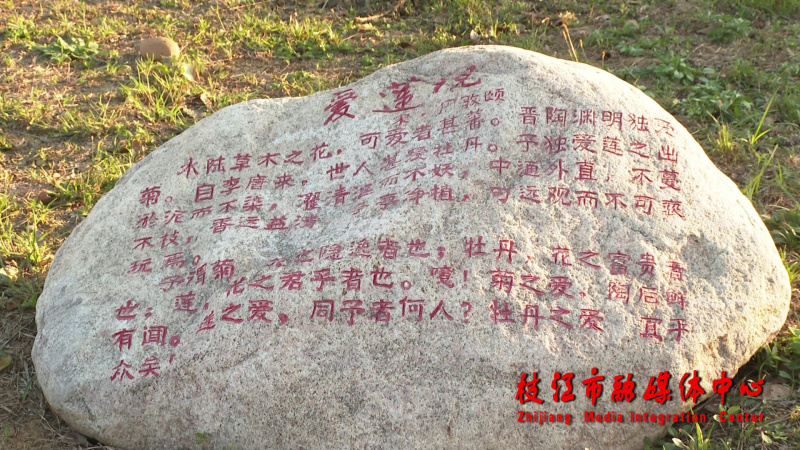 爱莲说
宋 周敦颐
水陆草木之花，可爱者甚蕃。晋陶渊明独爱
菊。自李唐来，世人甚爱牡丹。予独爱莲之出
於淤而不染，濯清涟而不妖，中通外直，不蔓
不枝，香远益清，亭净植，可远观而不可亵
玩焉。
予谓菊，花之隐逸者也；牡丹，花之富贵者
也；莲，花之君子者也。噫！菊之爱，陶后鲜
有闻。莲之爱，同予者何人？牡丹之爱 宜乎
众矣！
枝江市融媒体中心
Zhijiang Media Integration Center